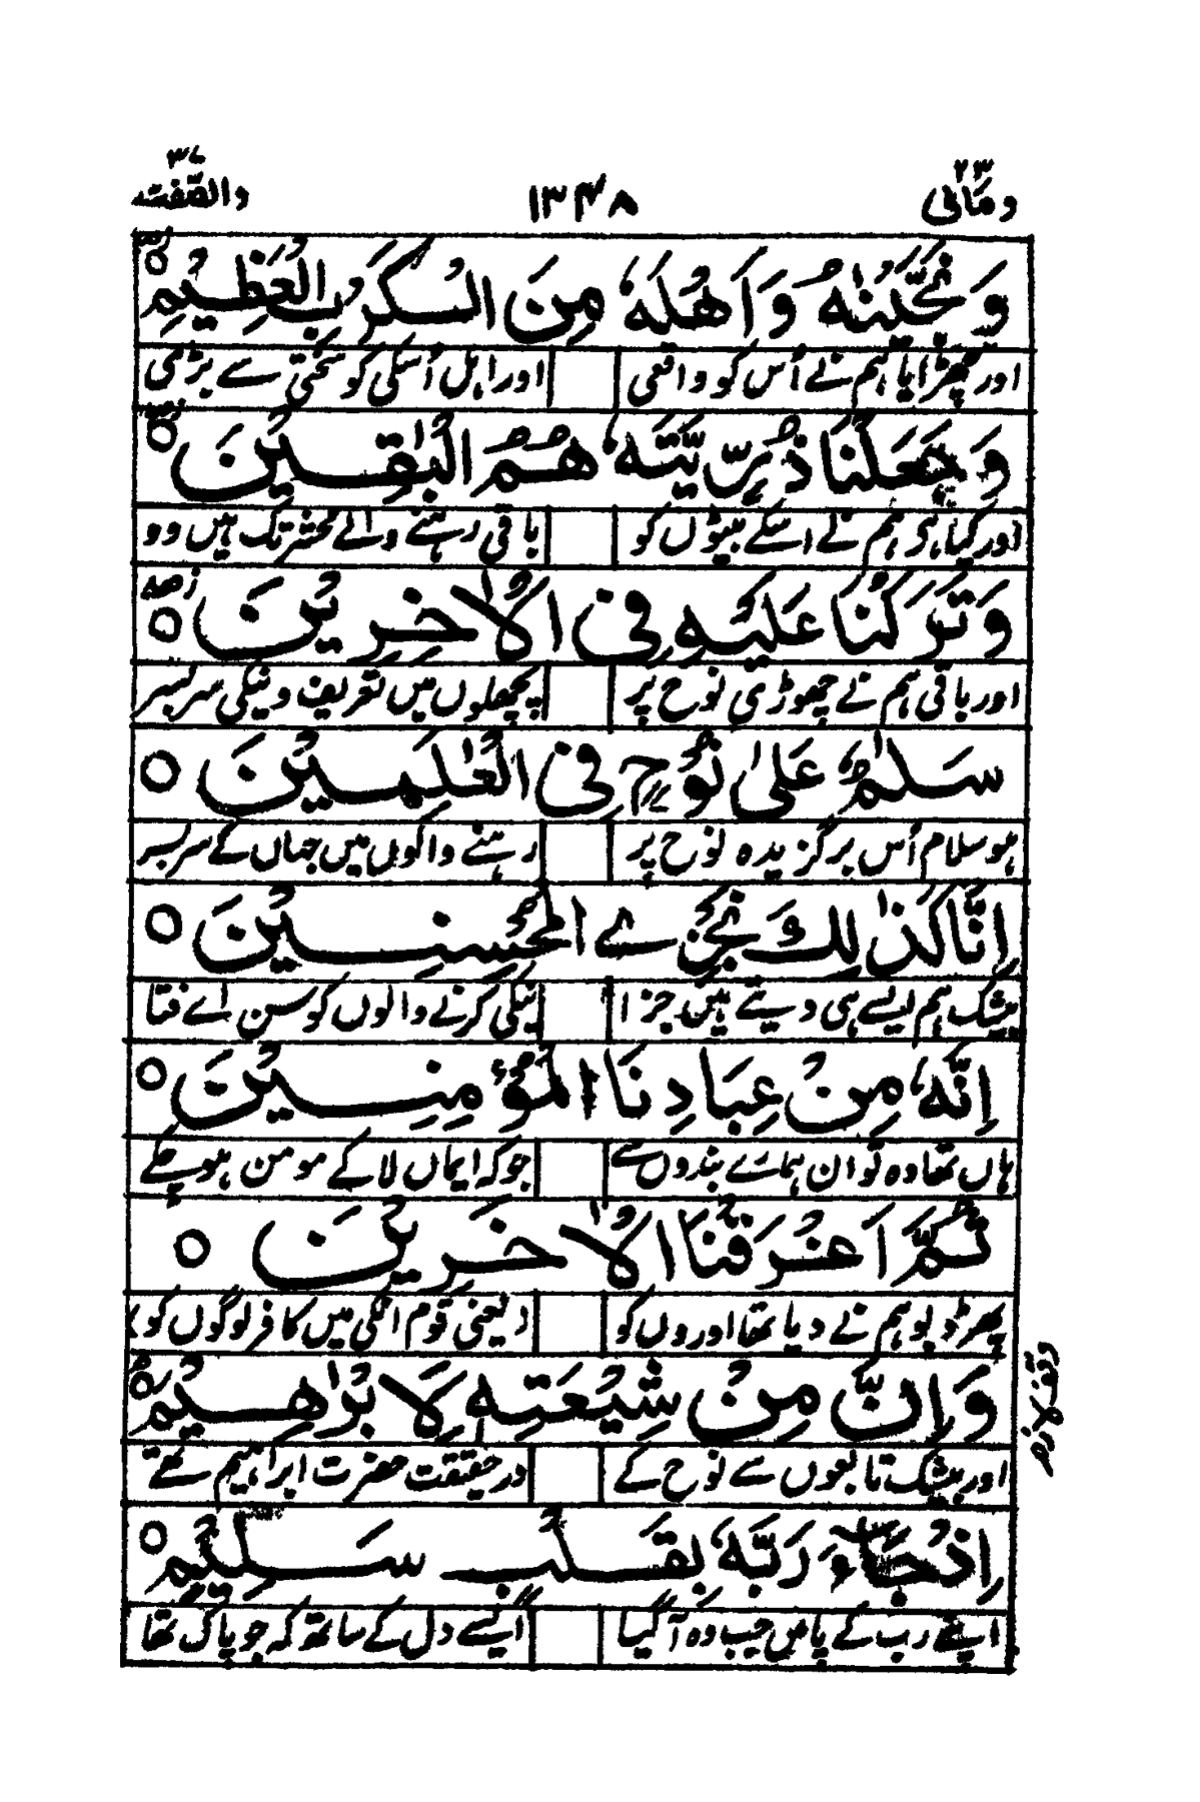 ومالی ۲۳ ۱۳۴۸ والصّٰفّٰت ۳۷
وَنَجَّيْنٰهُ وَاَهْلَهٗ مِنَ الْكَرْبِ الْعَظِيْمِ
اور چھڑایا ہم نے اُس کو واقعی اور اہل اُسکی کو سختی سے بڑی
وَجَعَلْنَا ذُرِّيَّتَهٗ هُمُ الْبٰقِيْنَ
اور کیا ہم نے اسکے بیٹوں کو باقی رہنے والے محشر تک ہیں وو
وَتَرَكْنَا عَلَيْهِ فِى الْاٰخِرِيْنَ
اور باقی ہم نے چھوڑی نوح پر پچھلوں میں تعریف و نیکی سربسر
سَلٰمٌ عَلٰى نُوْحٍ فِى الْعٰلَمِيْنَ
ہو سلام اُس برگزیدہ نوح پر رہنے والوں میں جہاں کے سربسر
اِنَّا كَذٰلِكَ نَجْزِى الْمُحْسِنِيْنَ
بیشک ہم ایسے ہی دیتے ہیں جزا نیکی کرنے والوں کو سن اے فتا
اِنَّهٗ مِنْ عِبَادِنَا الْمُؤْمِنِيْنَ
ہاں تھا وہ تو ان ہمارے بندوں سے جو کہ ایماں لا کے مومن ہو چکے
ثُمَّ اَغْرَقْنَا الْاٰخَرِيْنَ
پھر ڈبو ہم نے دیا تھا اوروں کو (یعنی قوم انکی میں کافر لوگوں کو)
وَاِنَّ مِنْ شِيْعَتِهٖ لَاِبْرٰهِيْمَ
اور بیشک تابعوں سے نوح کے درحقیقت حضرت ابراہیم تھے
اِذْ جَآءَ رَبَّهٗ بِقَلْبٍ سَلِيْمٍ
اپنے رب کے پاس جب وہ آ گیا ایسے دل کے ساتھ کہ جو پاک تھا